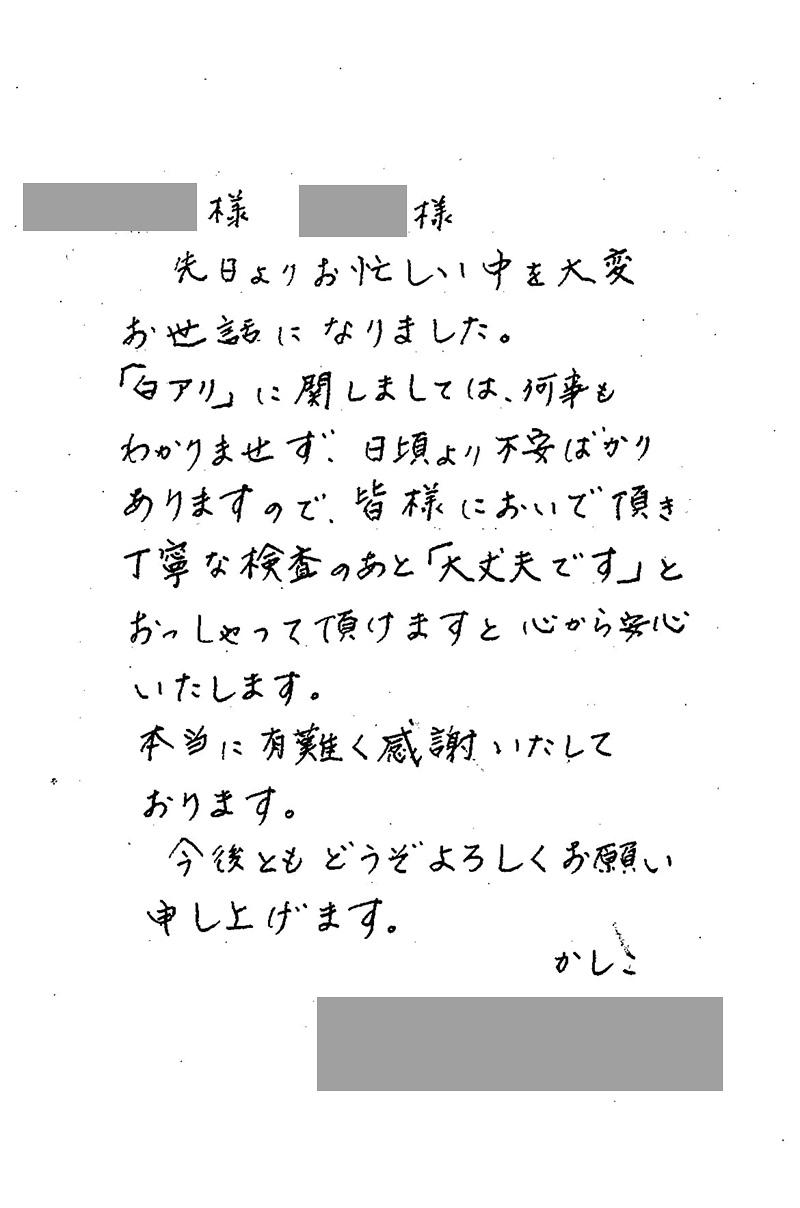 様　様
先日よりお忙しい中を大変
お世話になりました。
「白アリ」に関しましては、何事も
わかりませず、日頃より不安ばかり
ありますので、皆様においで頂き
丁寧な検査のあと「大丈夫です」と
おっしゃって頂けますと心から安心
いたします。
本当に有難く感謝いたして
おります。
今後ともどうぞよろしくお願い
申し上げます。
かしこ